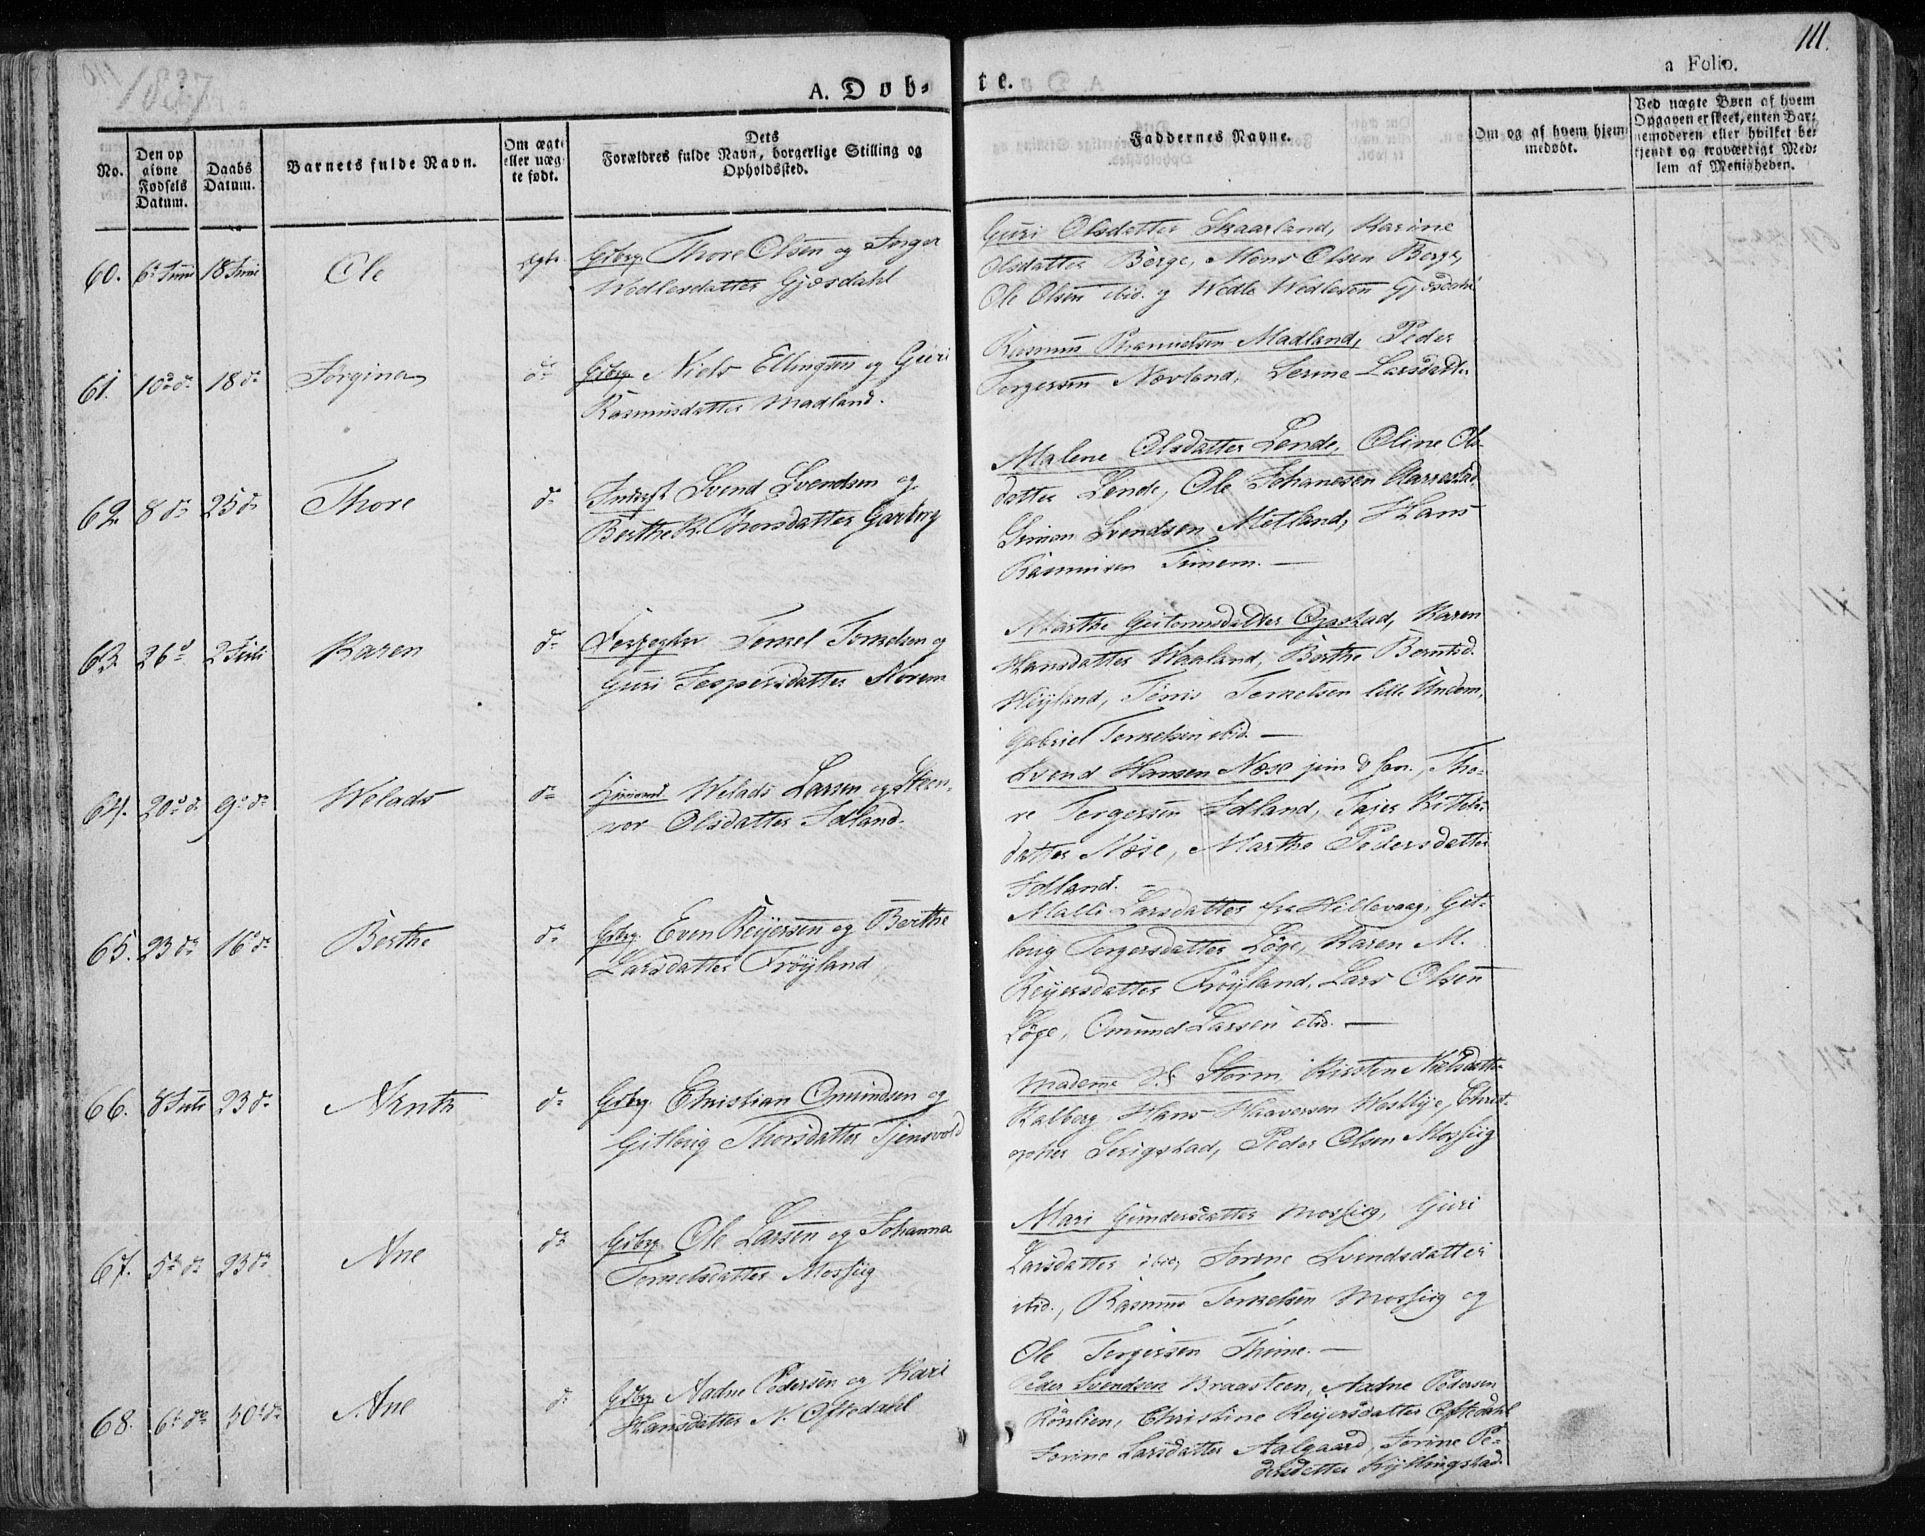 111.
1837
A. Døb-
te.
a Folio.
No.
Den op
givne
Fødsels
Datum.
Daabs
Datum.
Barnets fulde Navn.
Om ægte
eller uæg-
te født.
Dets
Forældres fulde Navn, borgerlige Stilling og
Opholdssted.
Faddernes Navne.
Om og af hvem hjem-
medøbt.
Ved uægte Børn af hvem
Opgaven er skeet, enten Bar-
nemoderen eller hvilket be-
kjendt og troværdigt Med-
lem af Menigheden.
60. 6 Juni 18 Juni Ole ægte Gdbrg Thore Olsen og Inger
Wedlesdatter Gjesdahl
Guri Olsdatter Skaarland, Karine
Olsdatter Berge, Mons Olsen Berge,
Ole Olsen ibid. og Wedle Wedlesen Gjesdahl
61. 10 d 18 d Jorgina d Gdbrg Niels Ellingsen og Guri
Rasmusdatter Madland.
Rasmus Madland, Peder
Torgersen Nevland, Serine Larsdatter
62. 8 d 25 d Thore d Inderst Svend Svendsen og
Berthe K. Thorsdatter Garborg
Malene Olsdatter Lende, Oline Ols-
datter Lende, Ole Johanesen Aarrestad,
Simon Svendsen Metland, Hans
Rasmusen Timem.
63. 26 d 2 Juli Karen d Torkel Torkelsen og
Guri Jespersdatter Norem
Marthe Guttormsdatter Opstad, Karen
Hansdatter Waaland, Berthe Berntsd.
Høyland, Tønis Torkelsen lille Undem,
Gabriel Torkelsen ibid.
64. 20 d 9 d Welads d Huusmd Welads Larsen og Steen-
vor Olsdatter Idland.
Svend Hansen Næse jun & sen., Tho-
re Torgersen Idland, Tajer Kittels-
datter Næse, Marthe Pedersdatter
Idland.
65. 23 d 16 d Berthe d Gdbrg. Even Reijersen og Berthe
Larsdatter Frøyland
Malli Larsdatter fra Hillevaag, Git-
lovig Torgersdatter Løge, Karen M.
Reijersdatter Frøyland, Lars Olsen
Løge, Omund Larsen ibid.
66. 8 Juli 23 d d Gdbrg Christian Omundsen og
Gitlovig Thorsdatter Tjensvold
Madame Storm, Kirsten Nielsdatter
Kalberg, Hans Haaversen Westlye, Christ-
opher Serigstad, Peder Olsen Mossiig
67. 5 d 23 d Ane d Gdbrg. Ole Larsen og Johanna
Torkelsdatter Mossiig
Mari Gundersdatter Mossiig, Guri
Larsdatter ibid, Sorine Svendsdatter
ibid., Rasmus Torkelsen Mossiig og
Ole Torgersen Thime.
68. 6 d 30 d Ane d Gdbrg Aadne Pedersen og Kari
Hansdatter N. Oftedahl
Peder Svendsen Braasteen, Aadne Pedersen
Rønlien, Christine Reijersdatter Oftedahl
Sorine Larsdatter Aalgaard, Sorine Pe-
dersdatter Kyllingstad.